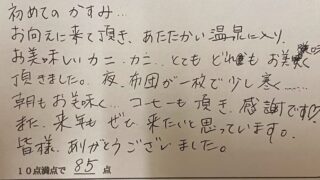 初めての かすみ…
お向えに来て頂き、あたたかい温泉に入り、
お美味しいカニ、カニ、とても どれも お美味しく
頂きました。夜、布団が一枚で少し寒く……
朝もお美味く… コーヒーも頂き、感謝です♡
また、来年も ぜひ 来たいと思っています。
皆様、ありがとうございました。
10点満点で 85 点